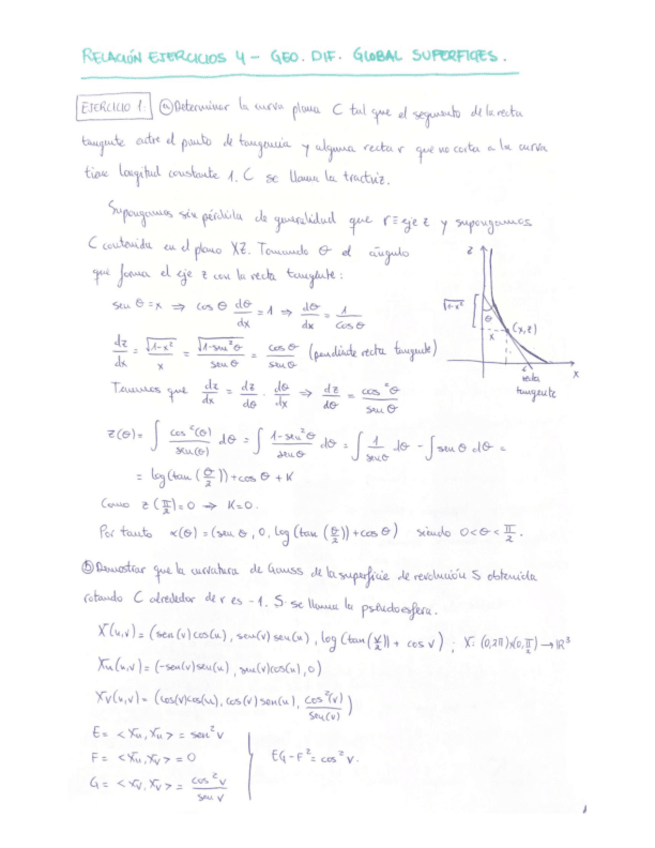 RELACIÓN EJERCICIOS 4 - GEO. DIF. GLOBAL SUPERFICIES.
EJERCICIO 1. ⓐ Determinar la curva plana C tal que el segmento de la recta
tangente entre el punto de tangencia y alguna recta r que no corta a la curva
tiene longitud constante 1. C se llama la tractriz.
Supongamos sin pérdida de generalidad que r ≡ eje z y supongamos
C contenida en el plano XZ. Tomando θ el ángulo
que forma el eje z con la recta tangente:
sen θ = x ⇒ cos θ dθ/dx = 1 ⇒ dθ/dx = 1/cos θ
dz/dx = √(1-x²)/x = √(1-sen²θ)/sen θ = cos θ/sen θ (pendiente recta tangente)
Tenemos que dz/dx = dz/dθ · dθ/dx ⇒ dz/dθ = cos²θ/sen θ
z
√(1-x²)
θ
x
(x,z)
x
recta
tangente
z(θ) = ∫ cos²(θ)/sen(θ) dθ = ∫ (1-sen²θ)/sen θ dθ = ∫ 1/sen θ dθ - ∫ sen θ dθ =
= log(tan(θ/2)) + cos θ + K
Como z(π/2) = 0 → K = 0.
Por tanto α(θ) = (sen θ, 0, log(tan(θ/2)) + cos θ) siendo 0 < θ < π/2.
ⓑ Demostrar que la curvatura de Gauss de la superficie de revolución S obtenida
rotando C alrededor de r es -1. S se llama la pseudoesfera.
X(u,v) = (sen(v)cos(u), sen(v)sen(u), log(tan(v/2)) + cos v) ; X: (0,2π)x(0,π/2) → ℝ³
Xu(u,v) = (-sen(v)sen(u), sen(v)cos(u), 0)
Xv(u,v) = (cos(v)cos(u), cos(v)sen(u), cos²(v)/sen(v))
E = <Xu, Xu> = sen²v
F = <Xu, Xv> = 0
G = <Xv, Xv> = cos²v/sen v
EG - F² = cos²v.